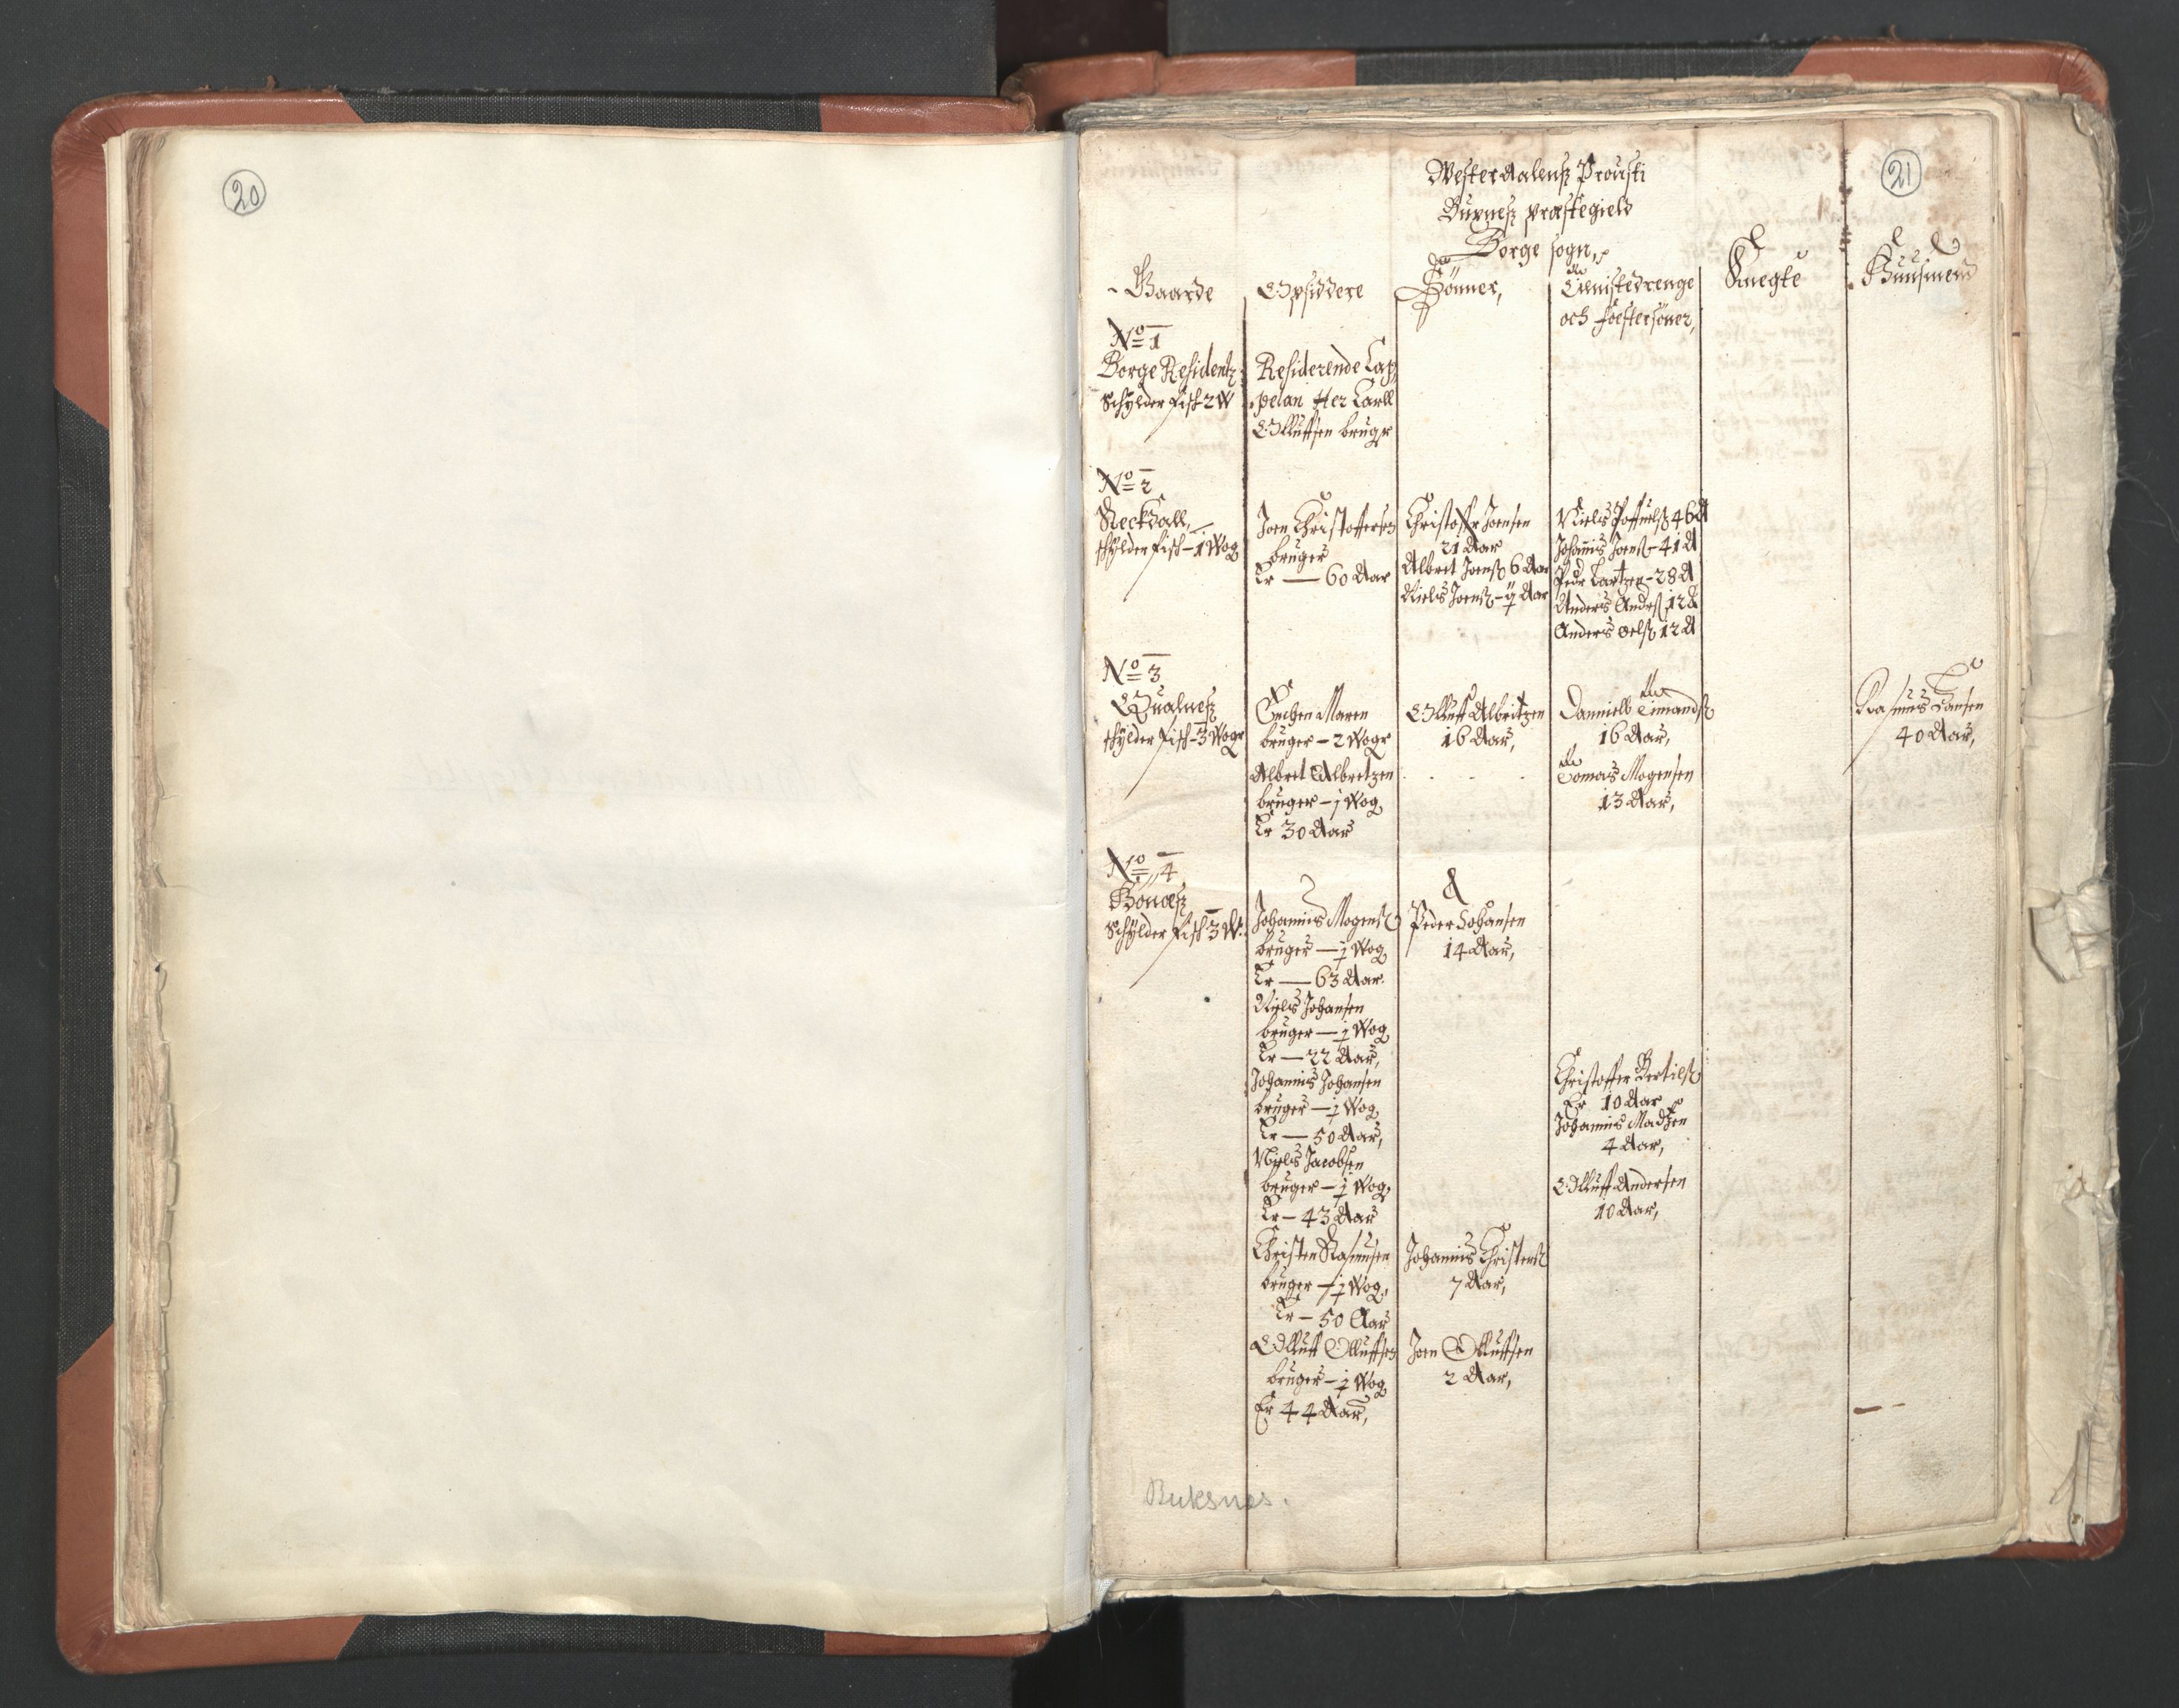 20
21
Westerdalenß Prousti
Buxneß præstegield
Borge sogn,
Gaarde
Opsiddere
Sönner,
Tienistedrenge
och fostersöner,
Knegte
Huusmend
No 1
Borge Residentz
Schylder fisk 2 W
Residerende Cap
pelan Her Carll
Olluffsen brugr
No 2
Reckdall,
schylder fisk - 1 Wog
Joen Christoffersen
bruger
Er — 60 Aar
Christoffr Joensen
21 Aar
Albret Joenß 6 Aar
Niels Joenß - Aar
Niels 46 A
Johanis Joenß - 41 A
Pedr Lartzen - 28 A
Anders Andrß 12 A
Anders oelß 12 A
No 3
Qualneß
schylder fisk - 3 Wogr
Enchen Maren
bruger - 2 Wogr
Albret Albretzen
bruger - 1 Wog
Er 30 Aar
Olluff Albritzen
16 Aar,
Danniell Timandß
16 Aar,
Tomas Mogensen
13 Aar,
Rasmus Hansen
40 Aar,
No 4
Schylder fisk 3 W:
Johannis Mogenß
bruger — ½ Wog
Er — 63 Aar
Niels Johansen
bruger — ½ Wog
Er — 22 Aar,
Johannis Johansen
bruger — ½ Wog
Er — 50 Aar,
Niels Jacobsen
bruger — ½ Wog,
Er — 43 Aar
Christen Rasmusen
bruger — ½ Wog,
Er — 50 Aar
Olluff Olluffsen
bruger — ½ Wog
Er 44 Aar,
Peder Johansen
14 Aar,
Christoffer Bertilß
Er 10 Aar
Johannis Madzen
4 Aar,
Olluff Andersen
10 Aar,
Johannis Christenß
7 Aar,
Joen Olluffsen
2 Aar,
Buksnes.